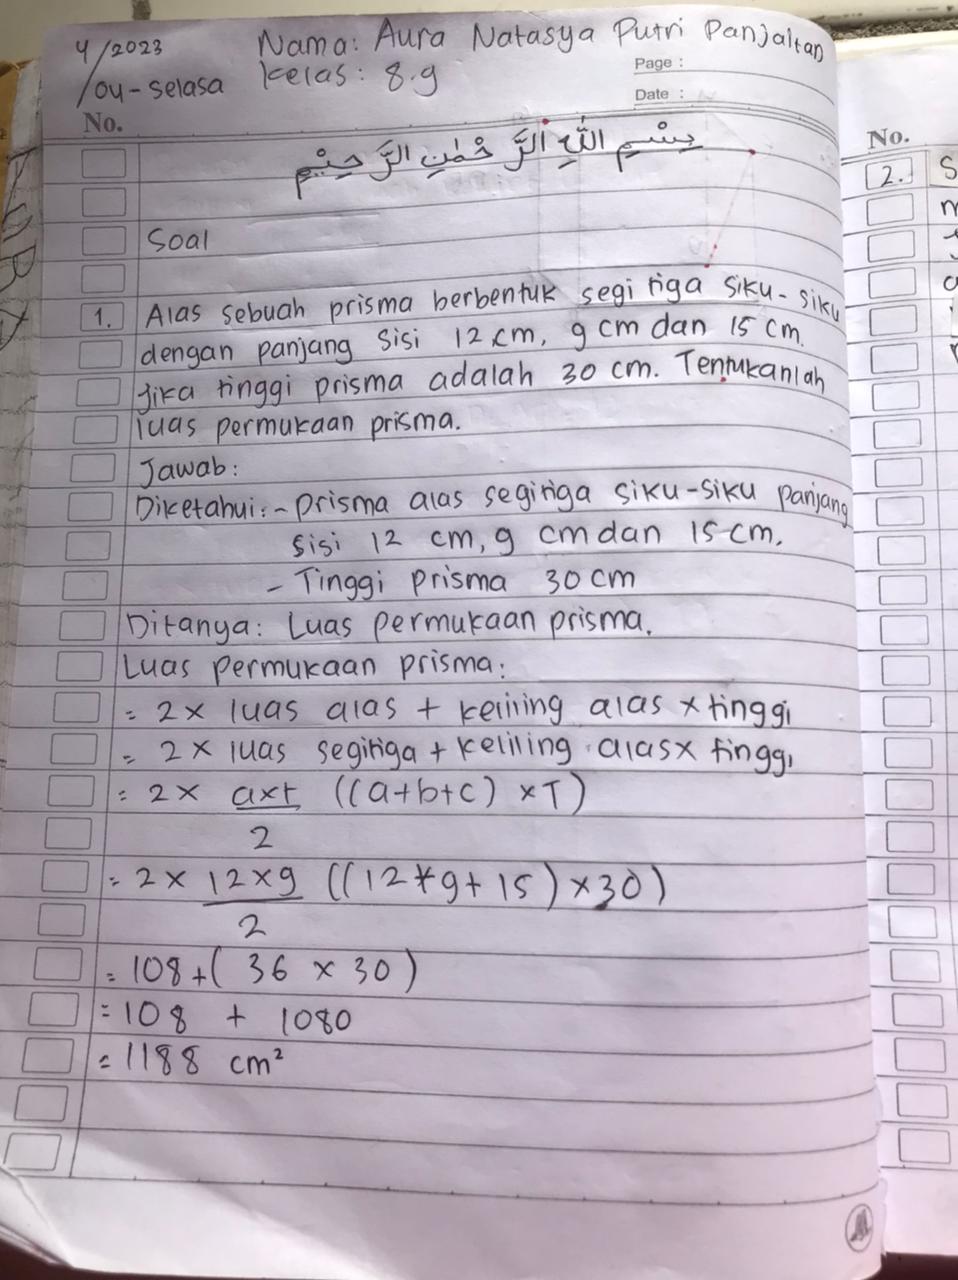 4/2023
/04-selasa
Nama: Aura Natasya Putri Panjaitan
Kelas: 8.9
Page :
Date :
No.
بِسْمِ اللّٰهِ الرَّحْمٰنِ الرَّحِيْمِ
Soal
1. Alas sebuah prisma berbentuk segi tiga siku-siku
dengan panjang sisi 12 cm, 9 cm dan 15 cm.
Jika tinggi prisma adalah 30 cm. Tentukanlah
luas permukaan prisma.
Jawab:
Diketahui:- Prisma alas segitiga siku-siku panjang
sisi 12 cm, 9 cm dan 15 cm.
- Tinggi prisma 30 cm
Ditanya: Luas permukaan prisma.
Luas permukaan prisma:
= 2x luas alas + keliling alas x tinggi
= 2x luas segitiga + keliling alas x tinggi
= 2x axt/2 ((a+b+c) xT)
= 2x 12x9/2 ((12+9+15)x30)
= 108+( 36 x 30 )
= 108 + 1080
= 1188 cm²
No.
2. S